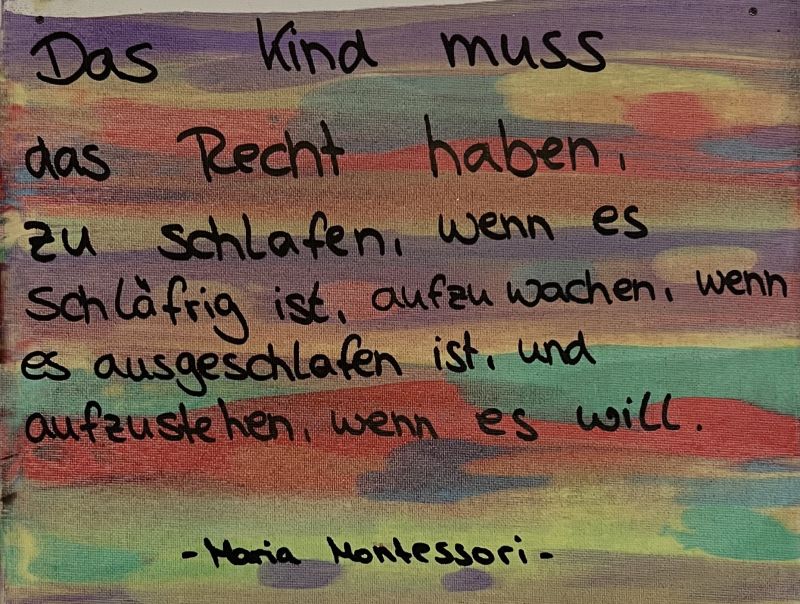 Das Kind muss
das Recht haben,
zu schlafen, wenn es
schläfrig ist, aufzuwachen, wenn
es ausgeschlafen ist, und
aufzustehen, wenn es will.
- Maria Montessori -